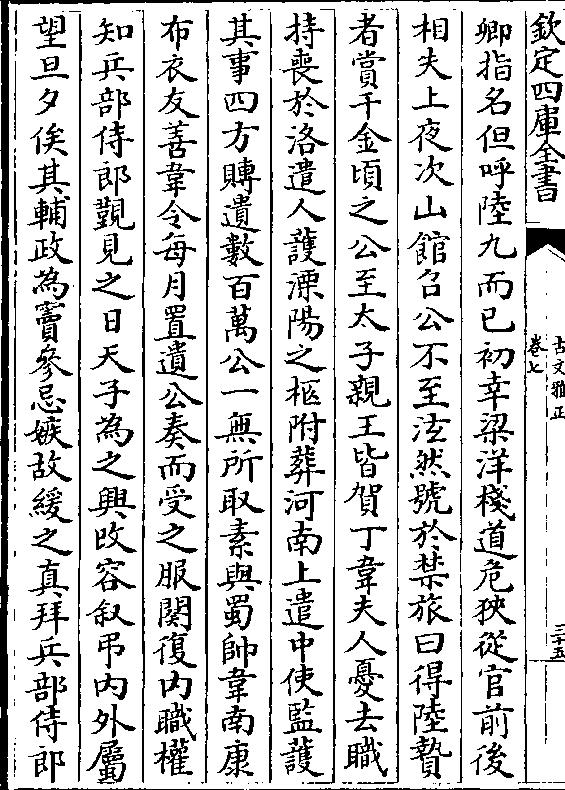 欽定四庫全書
古文雅正
卷七
三十五
卿指名但呼陸九而已初幸梁洋棧道危狹從官前後
相失上夜次山館召公不至泫然號於禁旅曰得陸贄
者賞千金頃之公至太子親王皆賀丁韋夫人憂去職
持喪於洛遣人護溧陽之柩附葬河南上遣中使監護
其事四方賻遺數百萬公一無所取素與蜀帥韋南康
布衣友善韋令每月置遺公奏而受之服闋復內職權
知兵部侍郎覲見之日天子為之興改容叙弔內外屬
望旦夕俟其輔政為竇參忌嫉故緩之真拜兵部侍郎